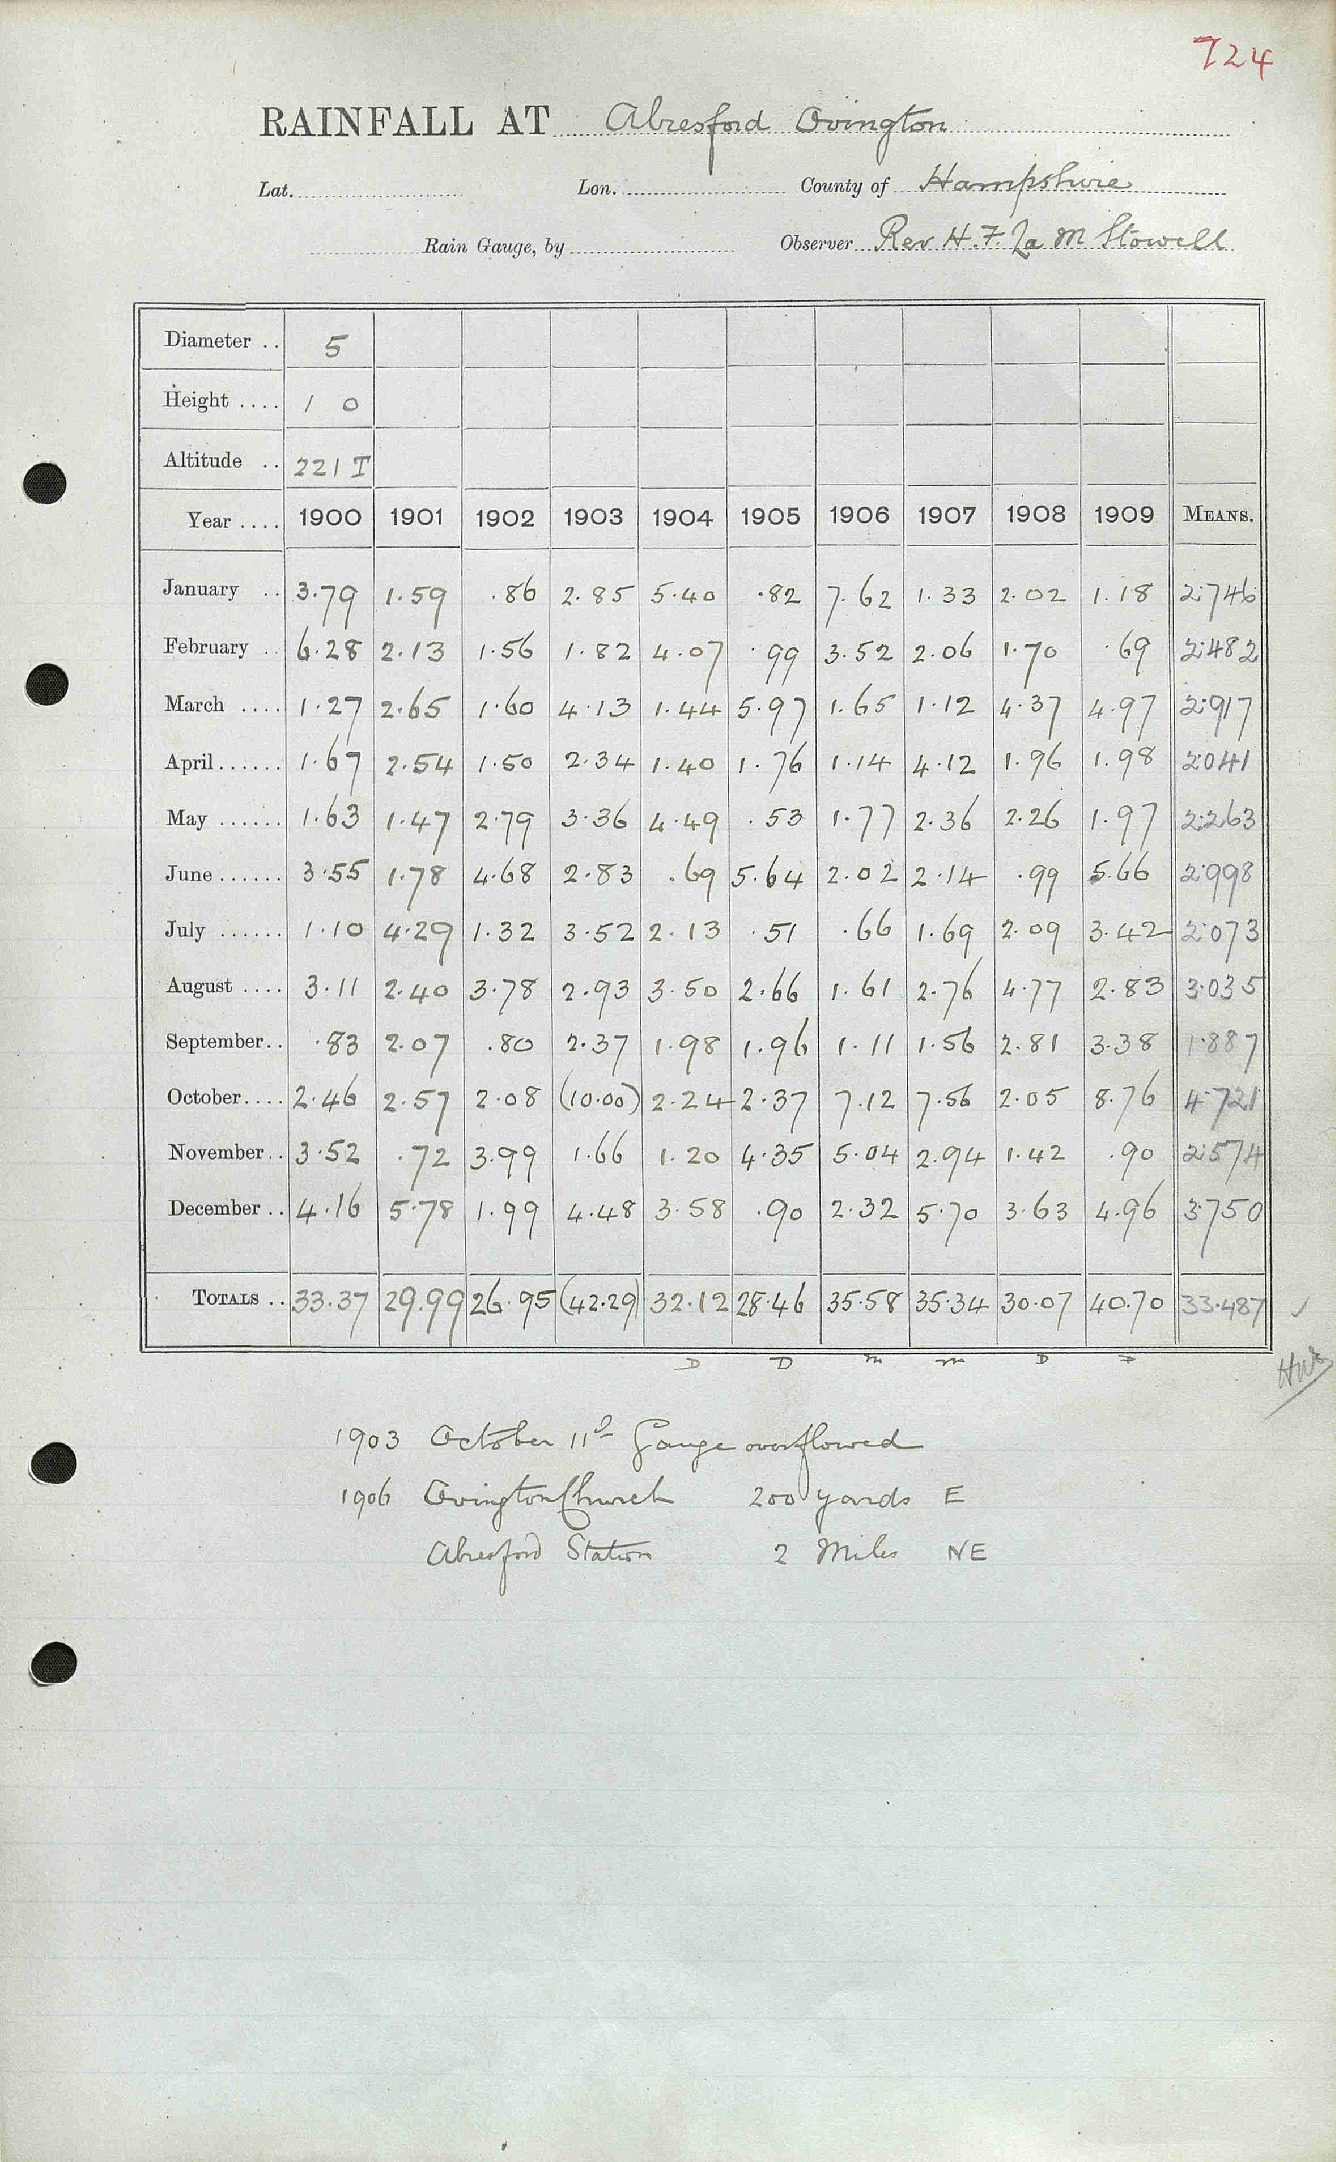 724
RAINFALL AT Alresford Ovington
Lat. Lon. County of Hampshire
Rain Gauge, by Observer Rev H. F. La M Stowell
Diameter .. 5
Height .... 1 0
Altitude .. 221 T
Year .... 1900 1901 1902 1903 1904 1905 1906 1907 1908 1909 MEANS.
January .. 3.79 1.59 .86 2.85 5.40 .82 7.62 1.33 2.02 1.18 2.746
February .. 6.28 2.13 1.56 1.82 4.07 .99 3.52 2.06 1.70 .69 2.482
March .... 1.27 2.65 1.60 4.13 1.44 5.97 1.65 1.12 4.37 4.97 2.917
April...... 1.67 2.54 1.50 2.34 1.40 1.76 1.14 4.12 1.96 1.98 2.041
May ...... 1.63 1.47 2.79 3.36 4.49 .53 1.77 2.36 2.26 1.97 2.263
June...... 3.55 1.78 4.68 2.83 .69 5.64 2.02 2.14 .99 5.66 2.998
July ...... 1.10 4.29 1.32 3.52 2.13 .51 .66 1.69 2.09 3.42 2.073
August .... 3.11 2.40 3.78 2.93 3.50 2.66 1.61 2.76 4.77 2.83 3.035
September.. .83 2.07 .80 2.37 1.98 1.96 1.11 1.56 2.81 3.38 1.887
October.... 2.46 2.57 2.08 (10.00) 2.24 2.37 7.12 7.56 2.05 8.76 4.721
November.. 3.52 .72 3.99 1.66 1.20 4.35 5.04 2.94 1.42 .90 2.574
December .. 4.16 5.78 1.99 4.48 3.58 .90 2.32 5.70 3.63 4.96 3.750
TOTALS .. 33.37 29.99 26.95 (42.29) 32.12 28.46 35.58 35.34 30.07 40.70 33.487
D D m m D D
1903 October 11th Gauge overflowed
1906 Ovington Church 200 yards E
Alresford Station 2 Miles NE